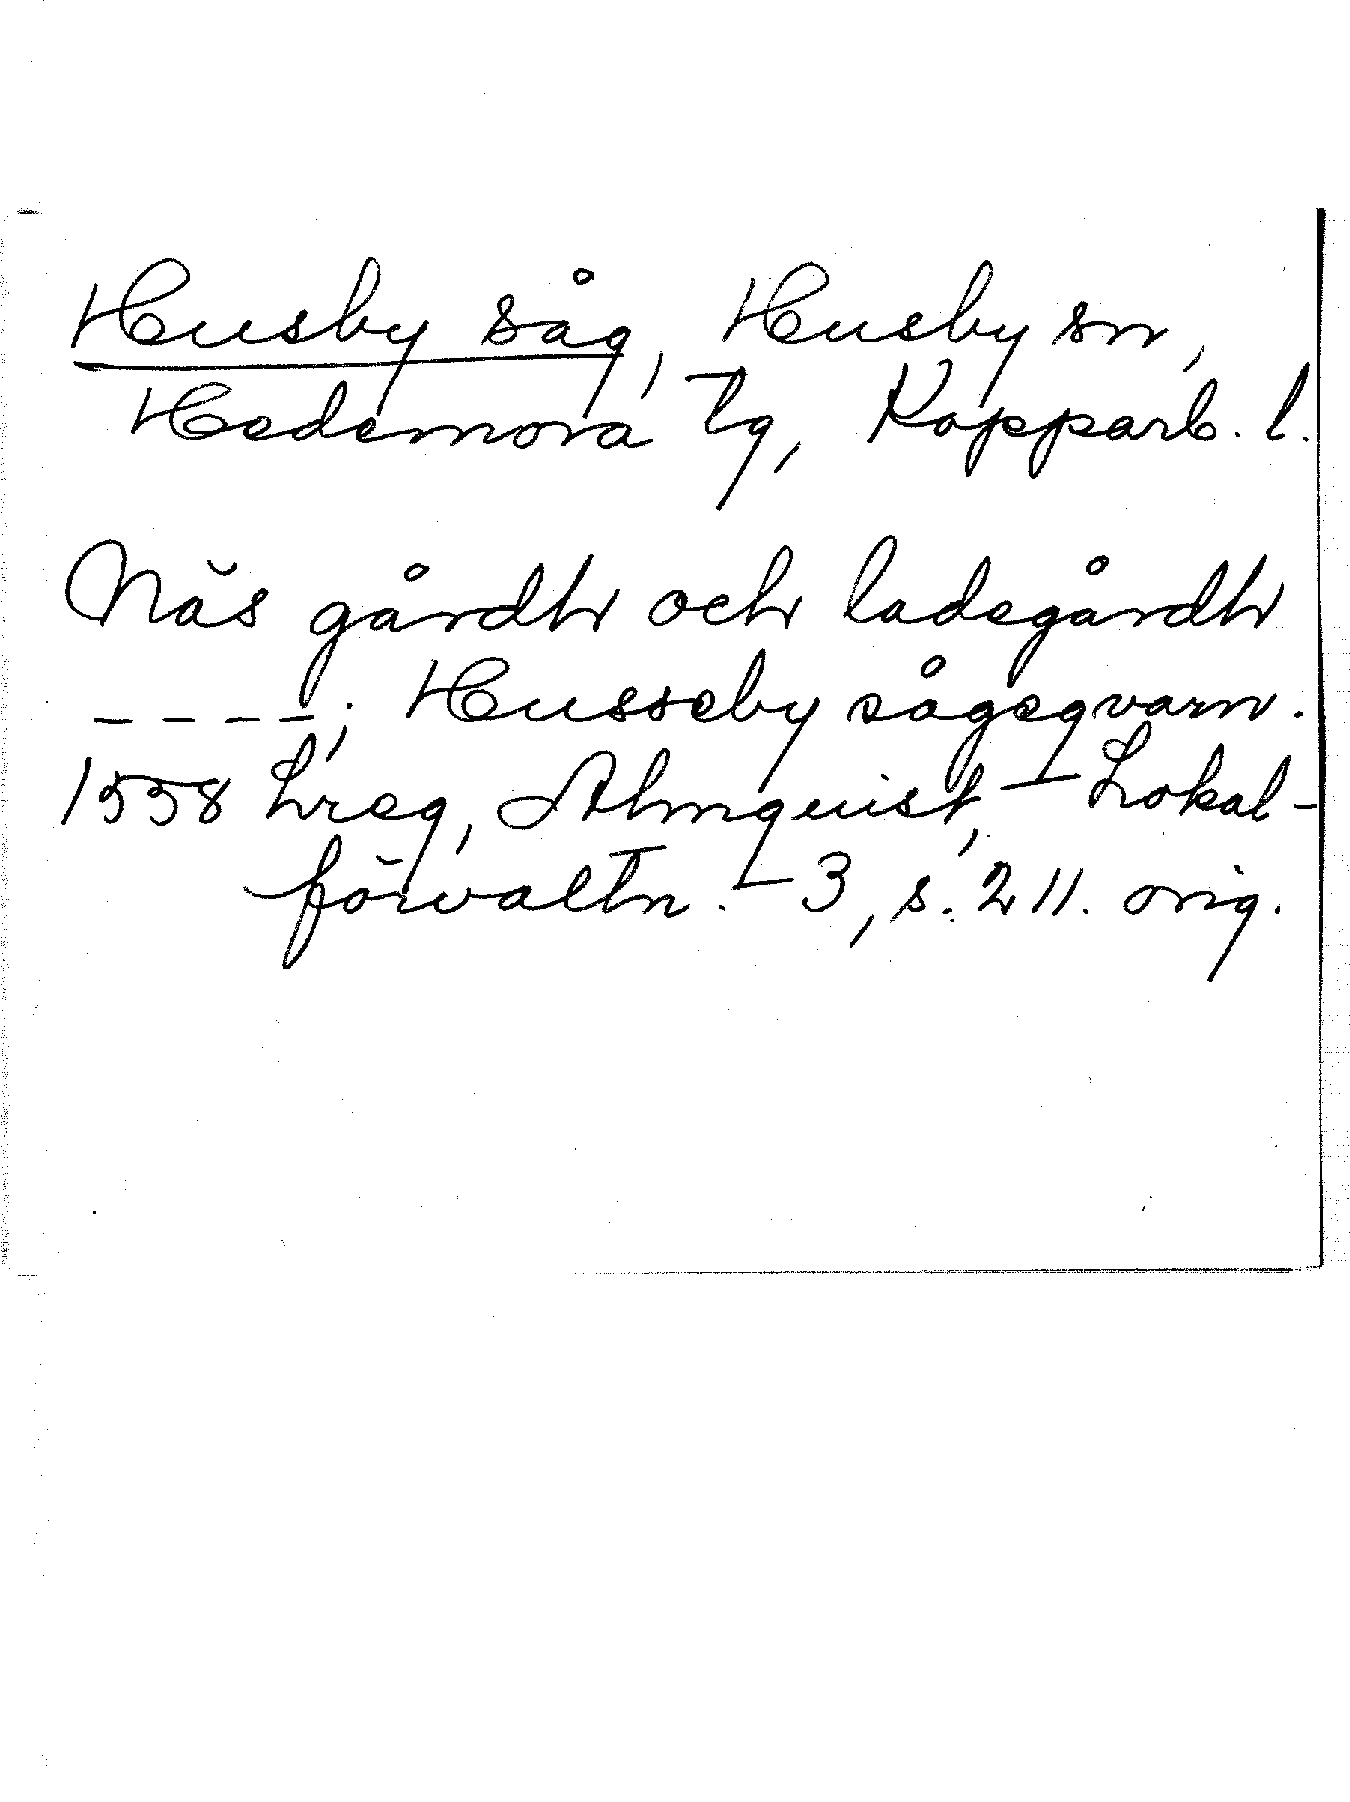 Husby såg, Husby sn,
Hedemora tg, Kopparb. l.
Näs gårdh och ladegårdh
----; Husseby sågeqvarn.
1558 Lreg, Almquist, Lokal-
förvaltn. 3, s. 211. orig.